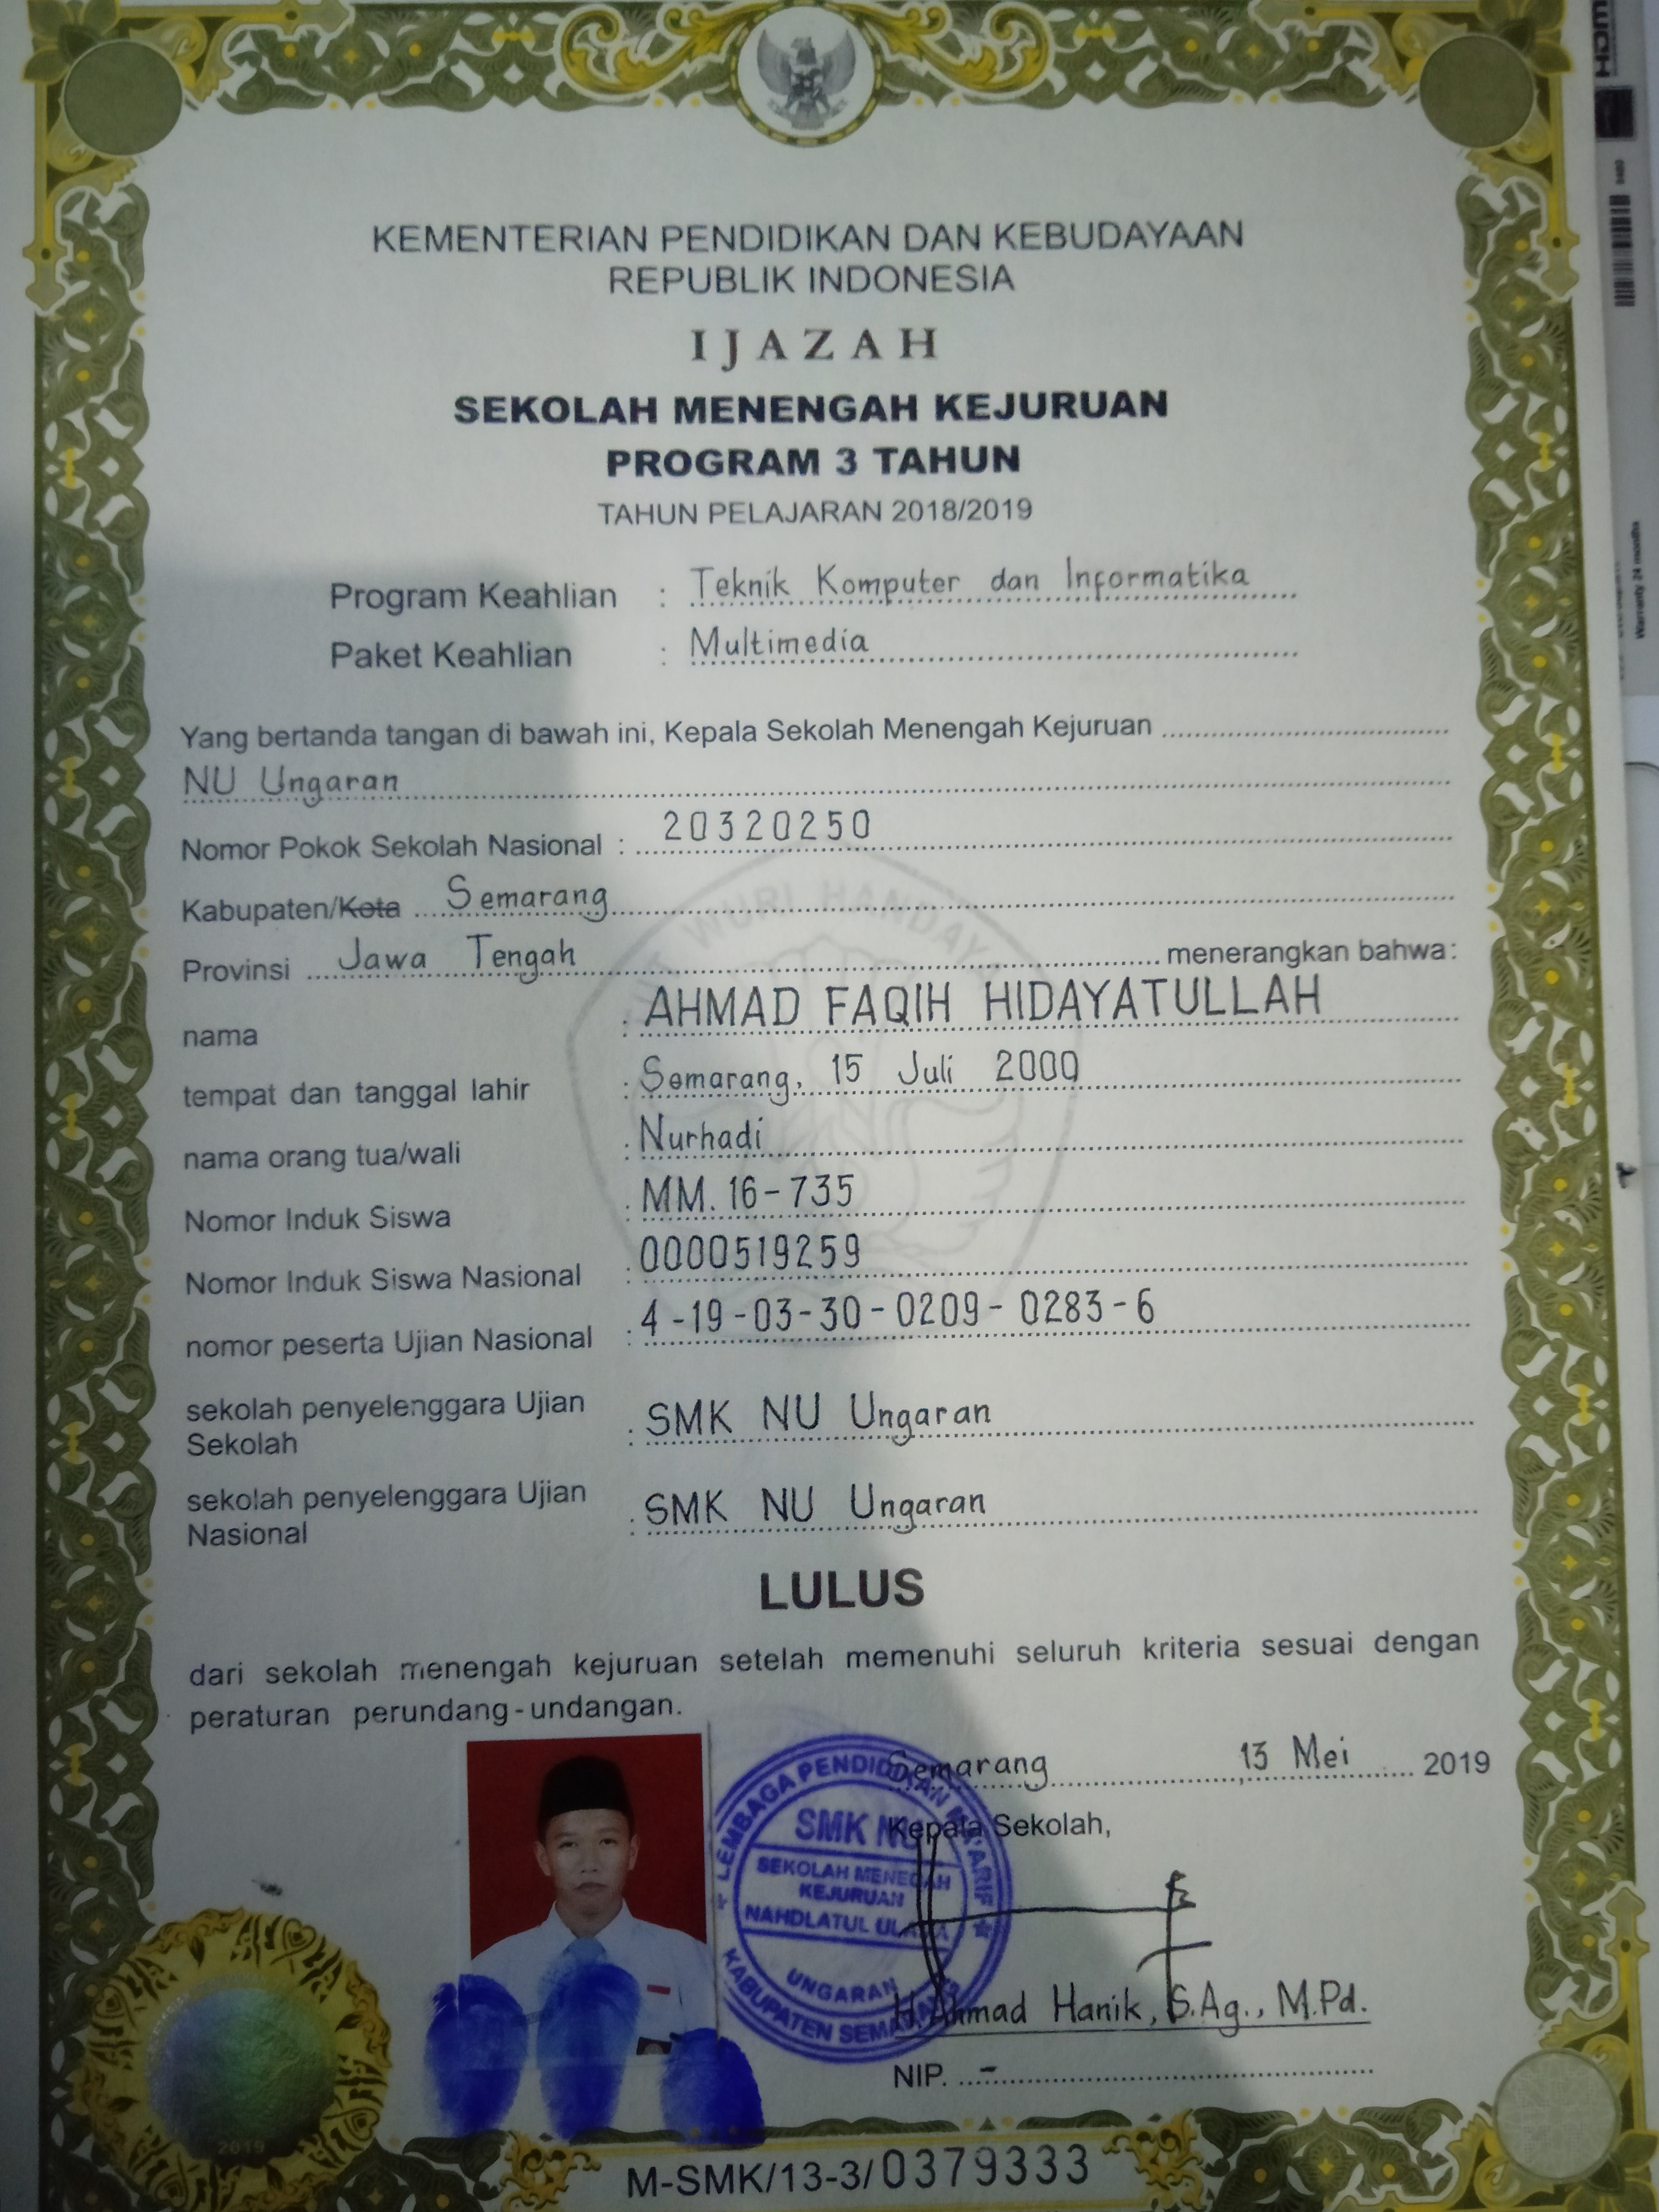 KEMENTERIAN PENDIDIKAN DAN KEBUDAYAAN
REPUBLIK INDONESIA
IJAZAH
SEKOLAH MENENGAH KEJURUAN
PROGRAM 3 TAHUN
TAHUN PELAJARAN 2018/2019
Program Keahlian : Teknik Komputer dan Informatika
Paket Keahlian : Multimedia
Yang bertanda tangan di bawah ini, Kepala Sekolah Menengah Kejuruan
NU Ungaran
Nomor Pokok Sekolah Nasional : 20320250
Kabupaten/Kota Semarang
Provinsi Jawa Tengah menerangkan bahwa:
nama : AHMAD FAQIH HIDAYATULLAH
tempat dan tanggal lahir : Semarang, 15 Juli 2000
nama orang tua/wali : Nurhadi
Nomor Induk Siswa : MM. 16-735
Nomor Induk Siswa Nasional : 0000519259
nomor peserta Ujian Nasional : 4-19-03-30-0209-0283-6
sekolah penyelenggara Ujian
Sekolah : SMK NU Ungaran
sekolah penyelenggara Ujian
Nasional : SMK NU Ungaran
LULUS
dari sekolah menengah kejuruan setelah memenuhi seluruh kriteria sesuai dengan
peraturan perundang-undangan.
Semarang, 13 Mei 2019
Kepala Sekolah,
LEMBAGA PENDIDIKAN MA'ARIF
SMK NU
SEKOLAH MENEGAH
KEJURUAN
NAHDLATUL ULAMA
UNGARAN
KABUPATEN SEMARANG
H. Ahmad Hanik, S.Ag., M.Pd.
NIP. -
2019
M-SMK/13-3/0379333
HDMI
Warranty 24 months